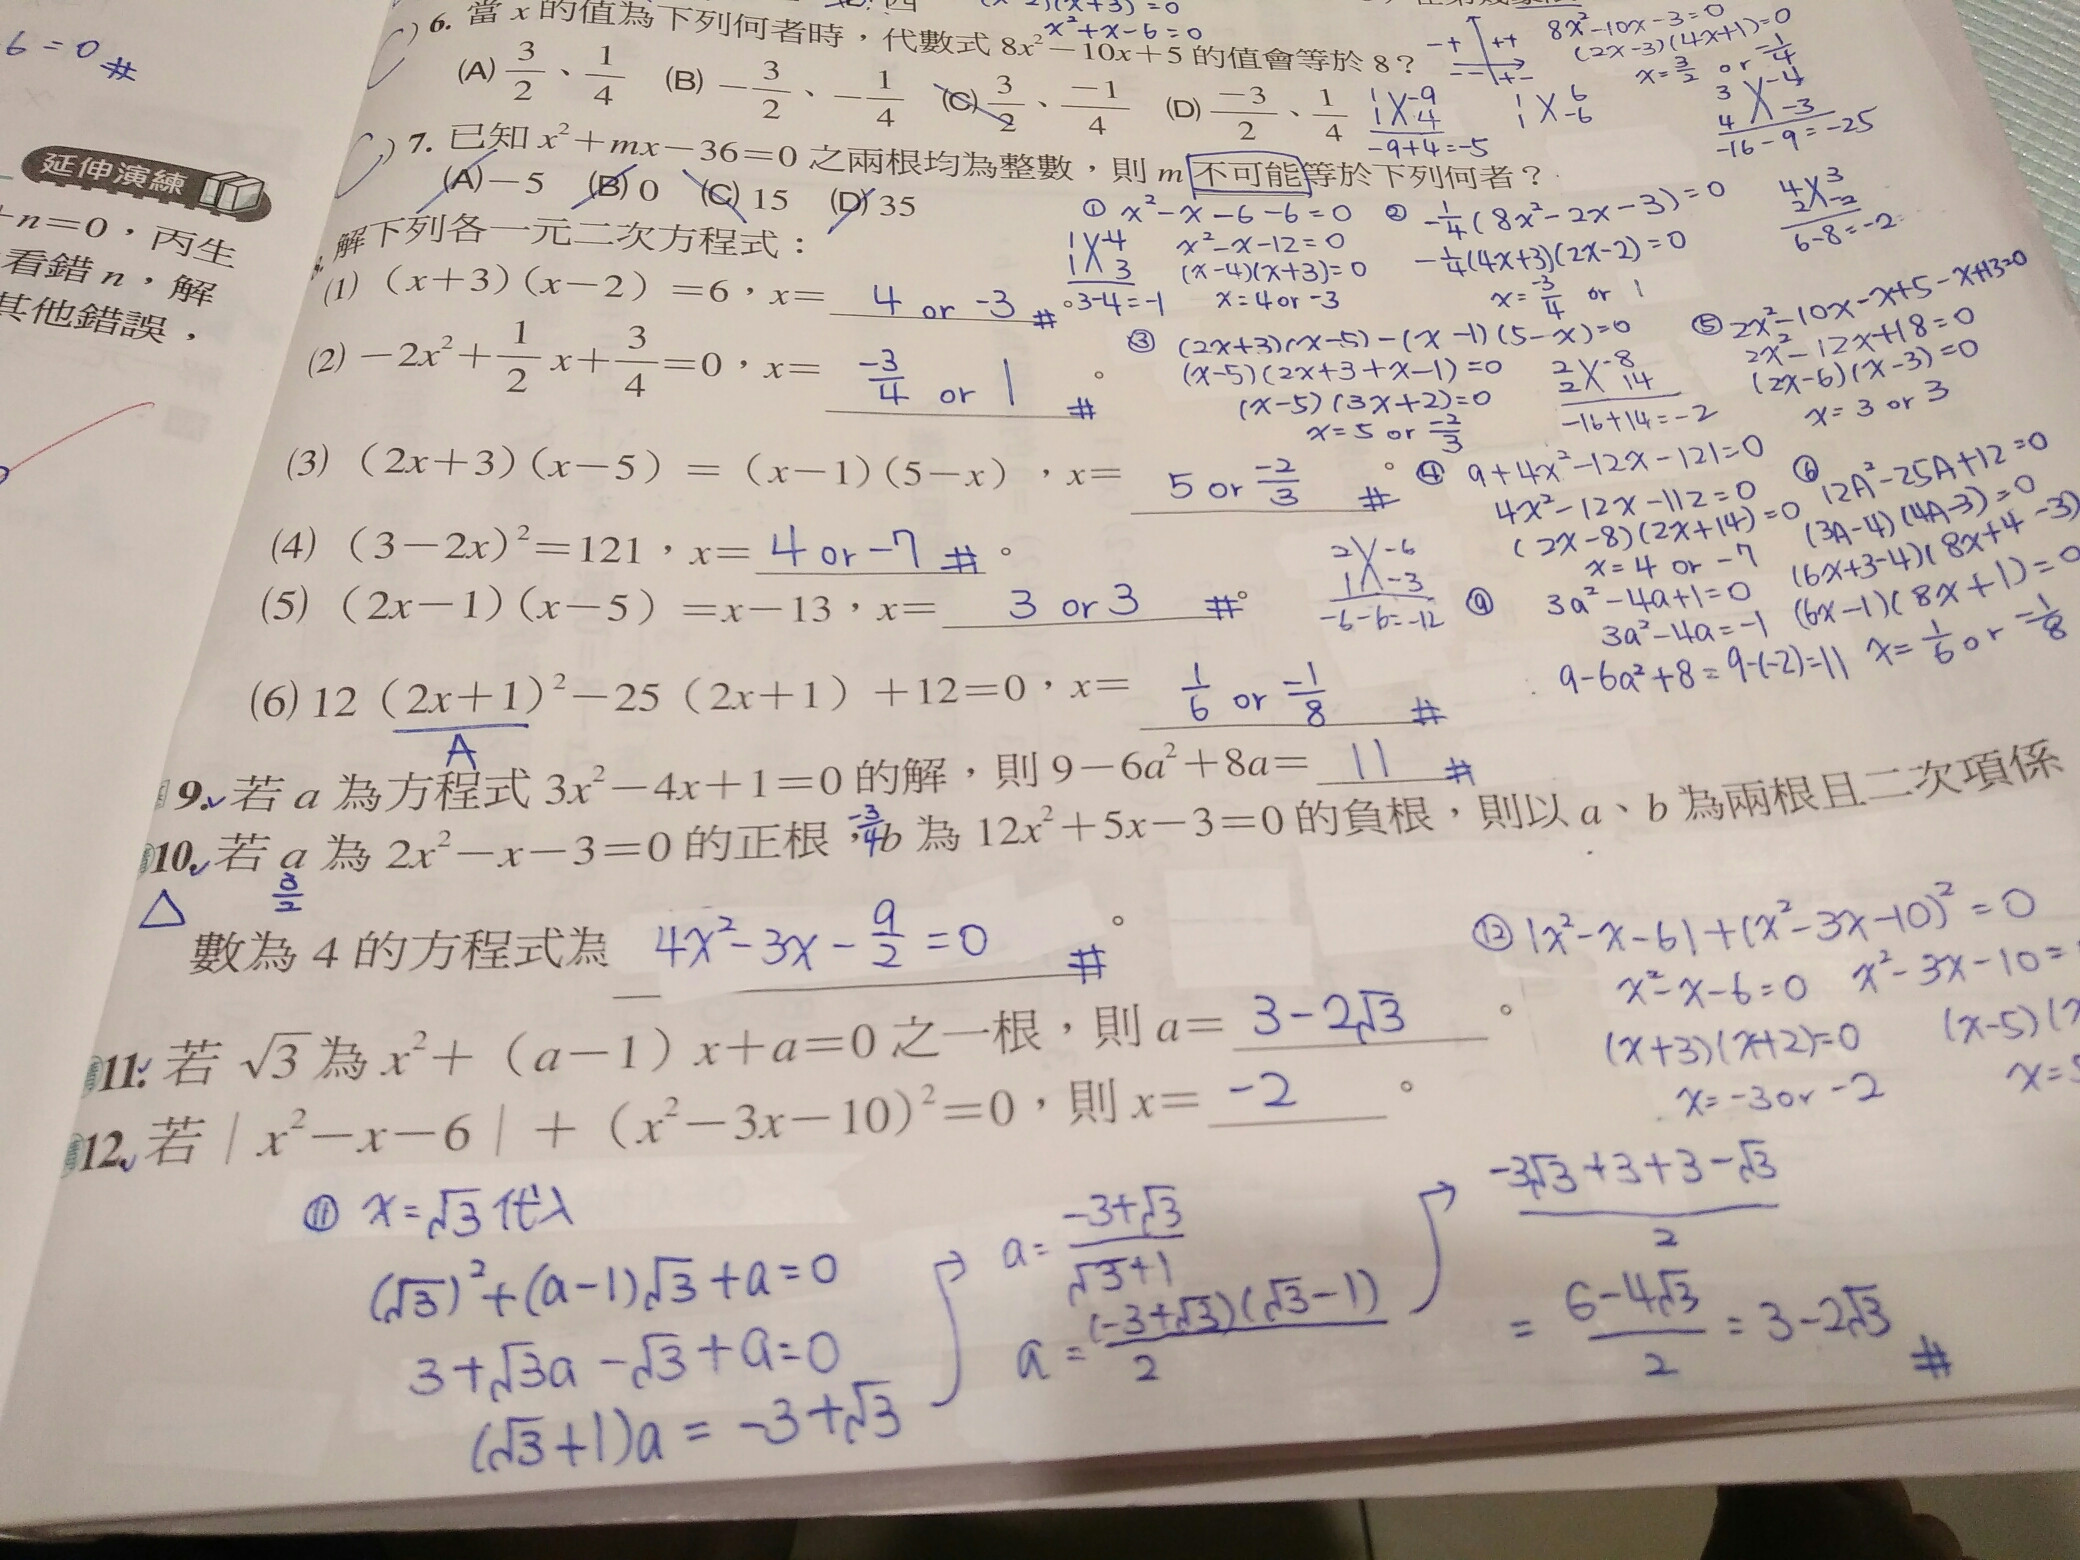 6=0 #
延伸演練
+n=0，丙生
看錯n，解
其他錯誤，
(x-2)(x+3)=0
x²+x-6=0
6. 當 x 的值為下列何者時，代數式 8x²-10x+5 的值會等於 8？
(A) 3/2、1/4 (B) -3/2、-1/4 (C) 3/2、-1/4 (D) -3/2、1/4
8x²-10x-3=0
(2x-3)(4x+1)=0
x=3/2 or -1/4
-+ ++
-- +-
1 -9
1 4
-9+4=-5
1 6
1 -6
3 -4
4 -3
-16-9=-25
7. 已知 x²+mx-36=0 之兩根均為整數，則 m 不可能等於下列何者？
(A) -5 (B) 0 (C) 15 (D) 35
解下列各一元二次方程式：
(1)（x+3）（x-2）=6，x= 4 or -3 #。
(2) -2x²+1/2x+3/4=0，x= -3/4 or 1 #。
(3)（2x+3）（x-5）=（x-1）（5-x），x= 5 or -2/3 #。
(4)（3-2x）²=121，x= 4 or -7 #。
(5)（2x-1）（x-5）=x-13，x= 3 or 3 #。
(6) 12（2x+1）²-25（2x+1）+12=0，x= 1/6 or -1/8 #
A
① x²-x-6-6=0
x²-x-12=0
(x-4)(x+3)=0
x=4 or -3
1 -4
1 3
3-4=-1
② -1/4(8x²-2x-3)=0
-1/4(4x+3)(2x-2)=0
x=-3/4 or 1
4 3
2 -2
6-8=-2
③ (2x+3)(x-5)-(x-1)(5-x)=0
(x-5)(2x+3+x-1)=0
(x-5)(3x+2)=0
x=5 or -2/3
2 -8
2 14
-16+14=-2
⑤ 2x²-10x-x+5-x+13=0
2x²-12x+18=0
(2x-6)(x-3)=0
x=3 or 3
④ 9+4x²-12x-121=0
4x²-12x-112=0
(2x-8)(2x+14)=0
x=4 or -7
2 -6
1 -3
-6-6=-12
⑥ 12A²-25A+12=0
(3A-4)(4A-3)=0
(6x+3-4)(8x+4-3)
(6x-1)(8x+1)=0
x=1/6 or -1/8
⑨ 3a²-4a+1=0
3a²-4a=-1
9-6a²+8=9-(-2)=11
9. 若 a 為方程式 3x²-4x+1=0 的解，則 9-6a²+8a= 11 #
10. 若 a 為 2x²-x-3=0 的正根，b 為 12x²+5x-3=0 的負根，則以 a、b 為兩根且二次項係
3/2
-3/4
△
數為 4 的方程式為 4x²-3x-9/2=0 #。
11. 若 √3 為 x²+（a-1）x+a=0 之一根，則 a= 3-2√3。
12. 若｜x²-x-6｜+（x²-3x-10）²=0，則 x= -2。
⑫ |x²-x-6|+(x²-3x-10)²=0
x²-x-6=0 x²-3x-10=
(x+3)(x+2)=0 (x-5)(x
x=-3 or -2 x=5
⑪ x=√3 代入
(√3)²+(a-1)√3+a=0
3+√3a-√3+a=0
(√3+1)a=-3+√3
a=(-3+√3)/(√3+1)
a=(-3+√3)(√3-1)/2
(-3√3+3+3-√3)/2
=(6-4√3)/2=3-2√3 #